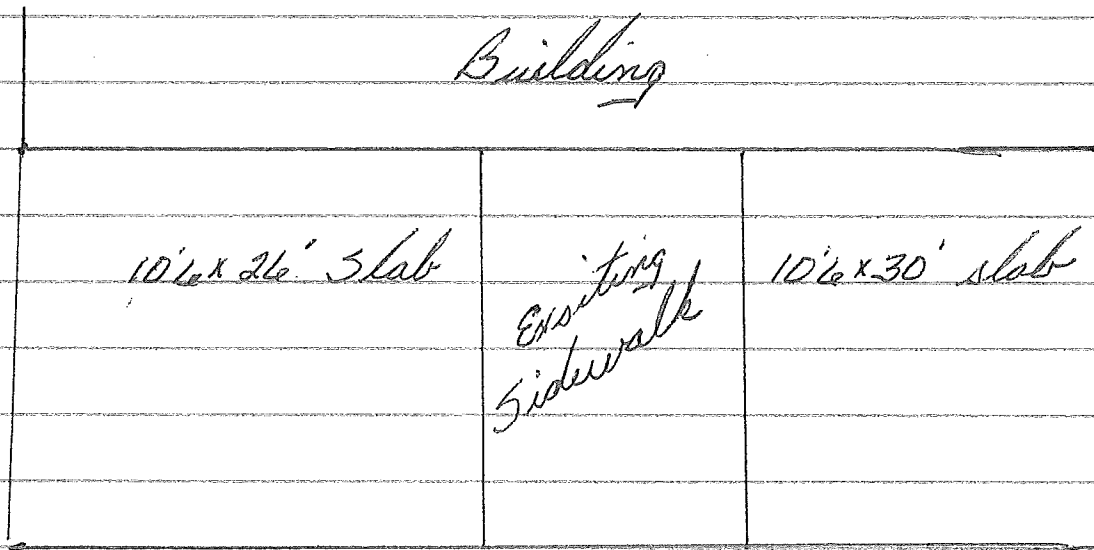 Building
10'6 x 26' Slab
Exsiting
Sidewalk
10'6 x 30' slab